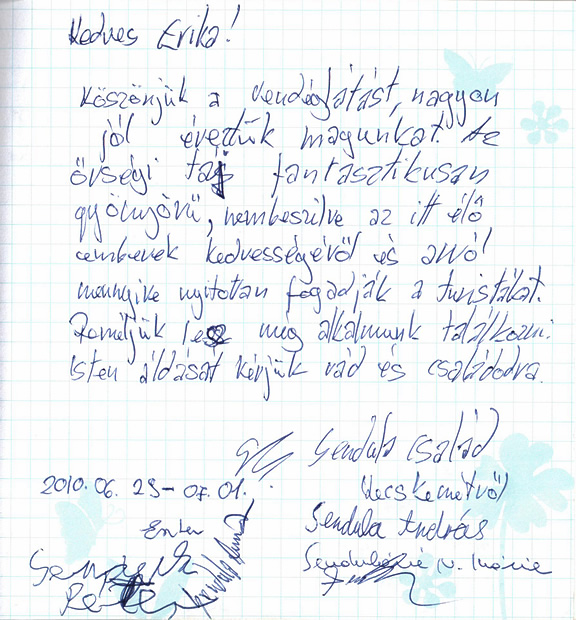 Kedves Erika!
Köszönjük a vendéglátást, nagyon
jól éreztük magunkat. Az
őrségi táj fantasztikusan
gyönyörű, nembeszilve az itt élő
emberek kedvességéről és arról
mennyire nyitotan fogadják a turistákat.
Reméljük lesz még alkalmunk találkozni.
Isten áldását kérjük rád és családodra.
Sendula család
2010.06. 29-07.01. Kecskemétről
Sendula András